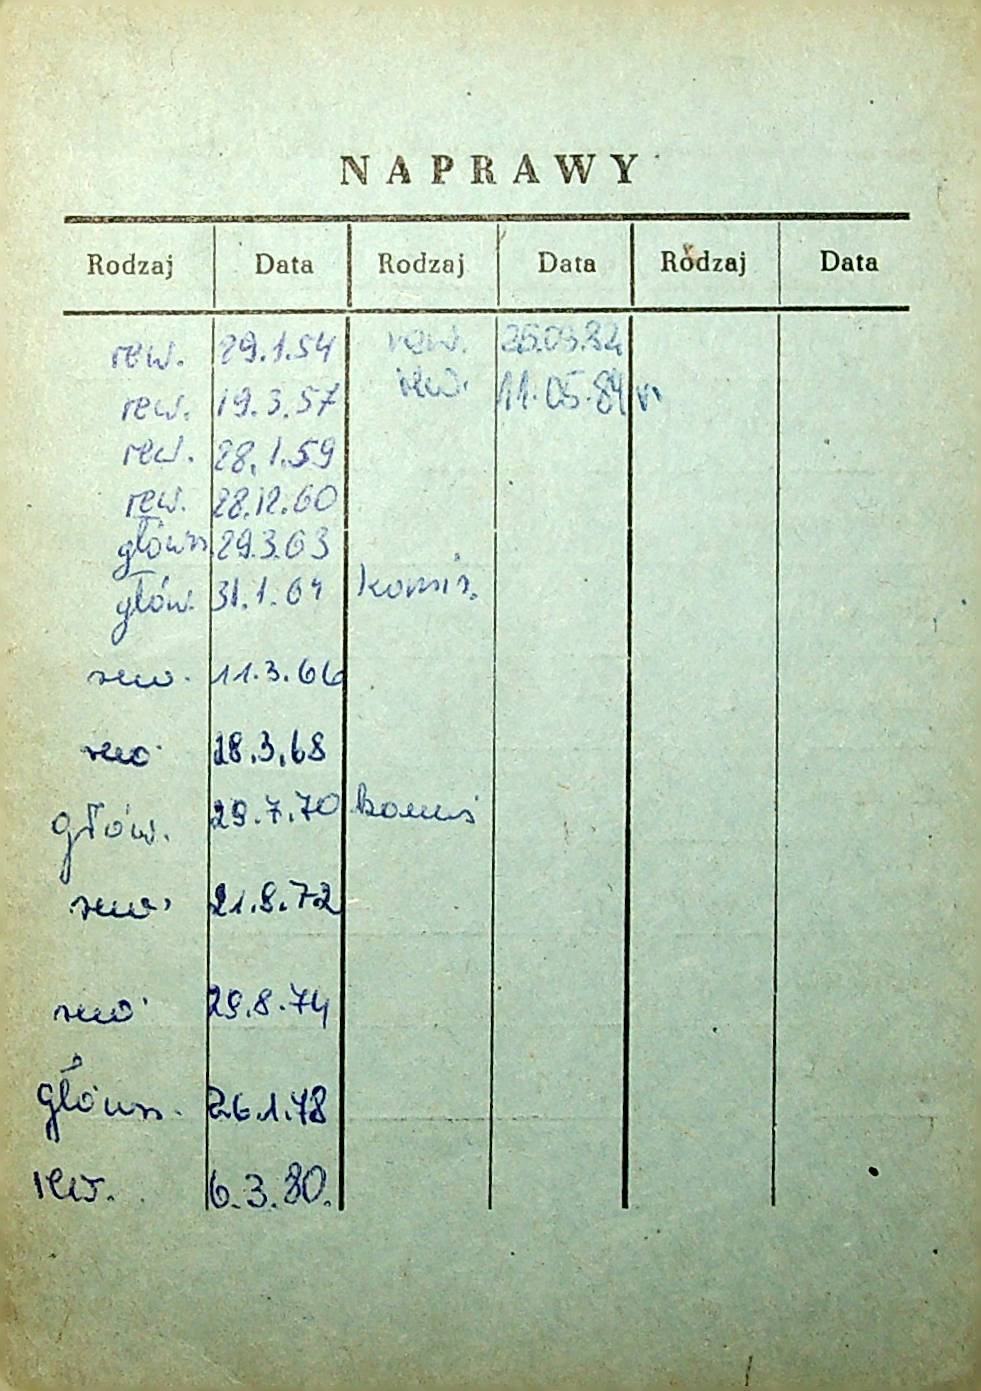 NAPRAWY
Rodzaj Data Rodzaj Data Rodzaj Data
rew. 29.1.54 rew. 26.03.82
rew. 19.3.57 rew. 11.05.84 r.
rew. 28.1.59
rew. 28.12.60
główn 29.3.63
głów. 31.1.64 komis.
rew. 11.3.66
rew. 18.3.68
głów. 29.7.70 komis
rew. 21.8.72
rew. 29.8.74
główn. 26.1.78
rew. 6.3.80.